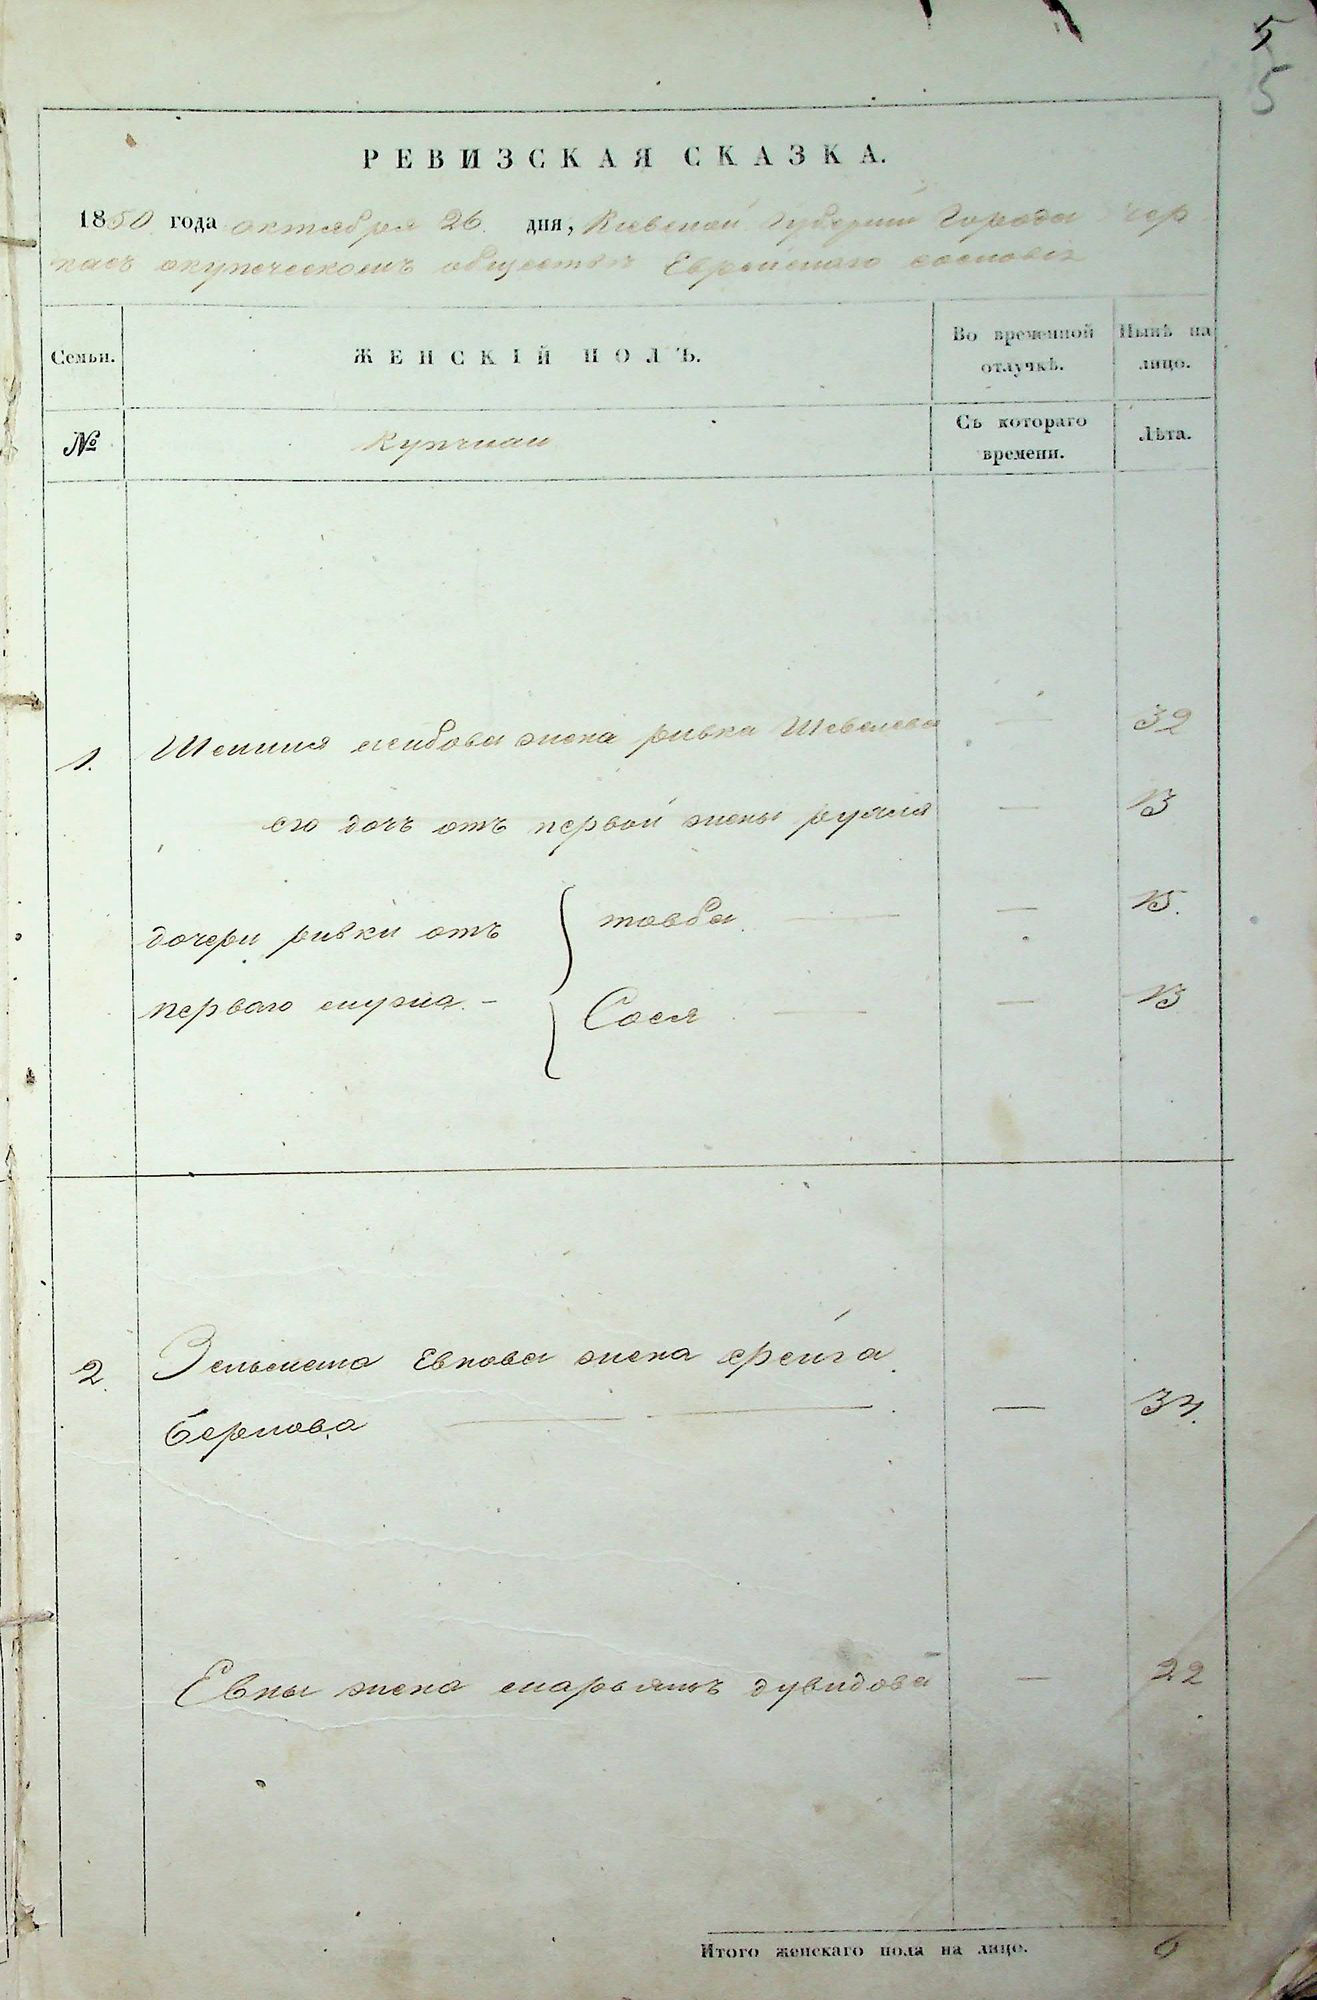 5
5
РЕВИЗСКАЯ СКАЗКА.
1850 года октября 26 дня, Киевской Губернии Города Чер
касъ окупеческомъ обществе Еврейскаго сословія
Семьи. ЖЕНСКІЙ ПОЛЪ. Во временной отлучкѣ. Нынѣ на лицо.
№ Купчихи Съ котораго времени. Лѣта.
1. жена ривка Шевелева — 32
его дочъ отъ первой жены рухля — 13
дочери ривки отъ товба — 15.
перваго мужа — Сося — 13
2. Зельмана Евнова жена фрейга
Беркова — 34.
Евны жена марьямъ дувидова — 22
Итого женскаго пола на лицо. 6